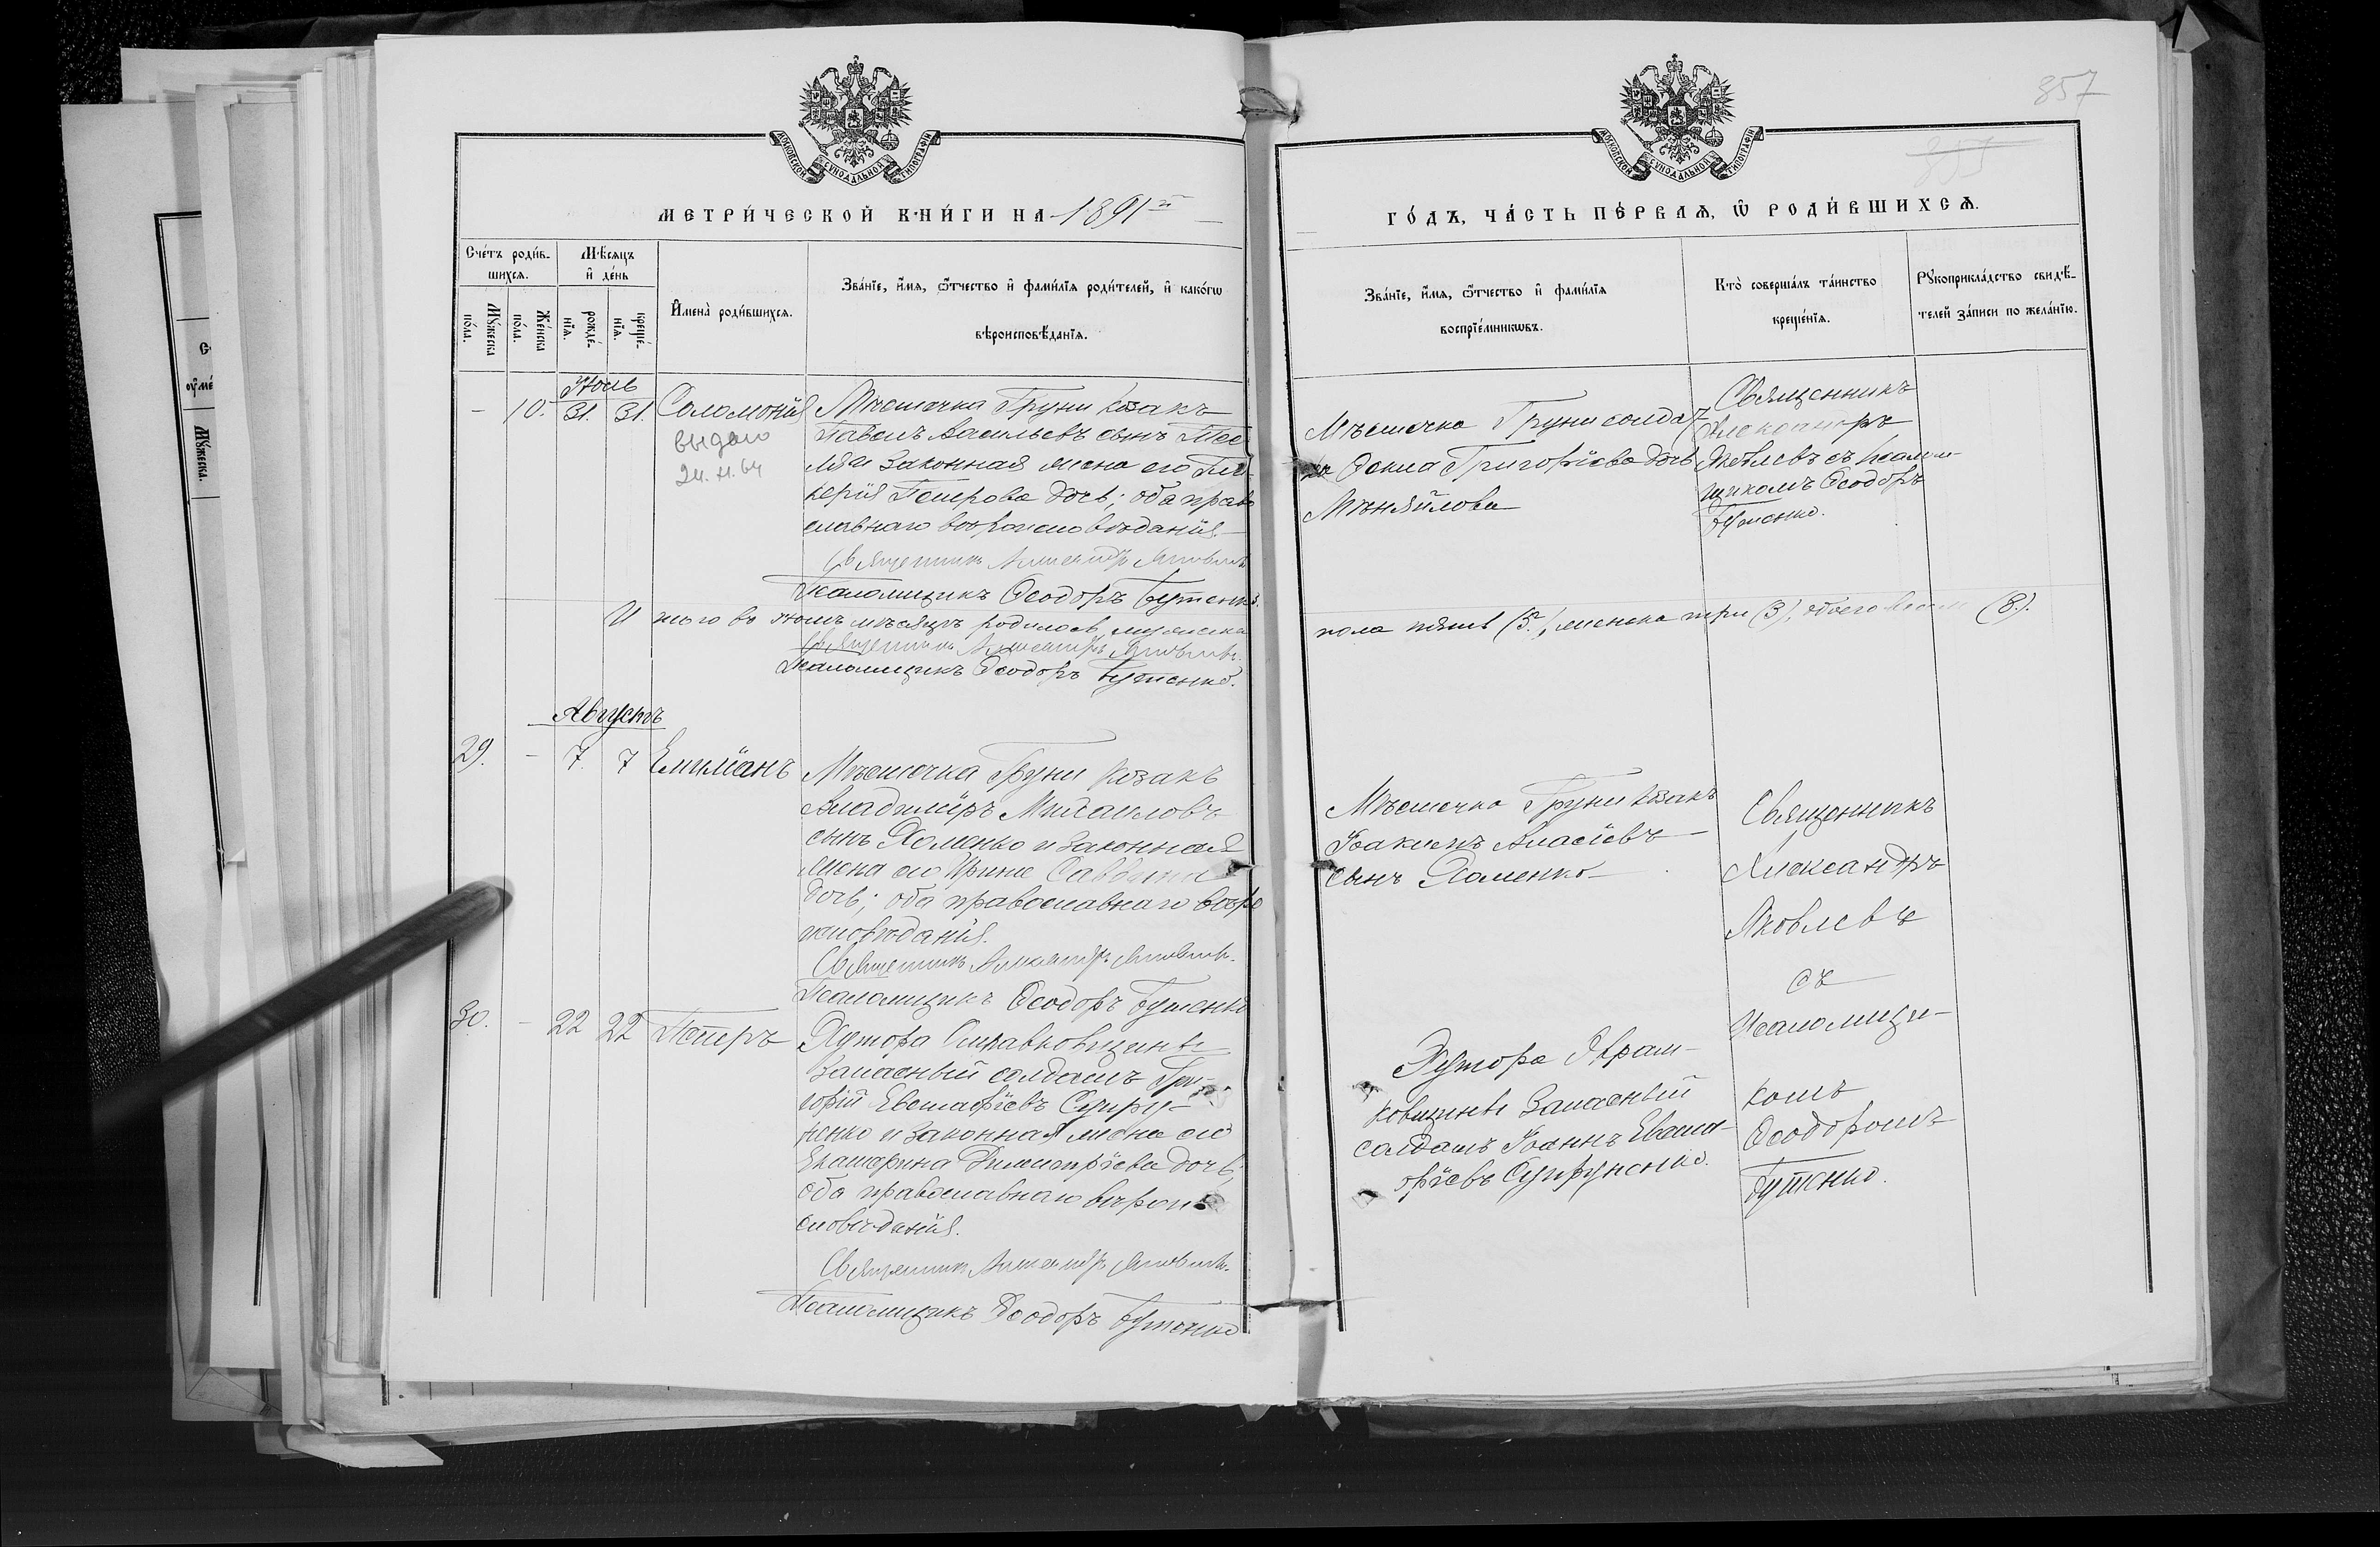 357
355
МОСКОВСКОЙ СУНОДАЛЬНОЙ ТИПОГРАФІИ
МОСКОВСКОЙ СУНОДАЛЬНОЙ ТИПОГРАФІИ
МЕТРИ́ЧЕСКОЙ КНИ́ГИ НА 1891й
ГО́ДЪ, ЧА́СТЬ ПЕ́РВАѦ, Ѽ РОДИ́ВШИХСѦ.
Сче́тъ роди́в-
шихсѧ.
Мꙋ́жеска
по́ла.
Же́нска
по́ла.
Мѣ́сѧцъ
и҆ де́нь
рожде́-
нїѧ.
креще́-
нїѧ.
И҆мена̀ роди́вшихсѧ.
Зва́нїе, и҆́мѧ, ѻ҆́тчество и҆ фами́лїѧ роди́телей, и҆ како́гѡ
вѣроисповѣ́данїѧ.
Зва́нїе, и҆́мѧ, ѻ҆́тчество и҆ фами́лїѧ
воспрїе́мникѡвъ.
Кто̀ соверша́лъ та́инство
креще́нїѧ.
Рꙋкоприкла́дство свидѣ́-
телей за́писи по жела́нїю.
Іюль
- 10. 31. 31. Соломонія
выдано
24.XI.64
Мѣстечка Груни козакъ
Павелъ Васильевъ сынъ
и законная жена его Гли-
керія Петрова дочь; оба право
славнаго вѣроисповѣданія.
Священникъ Александръ Яковлевъ
Псаломщикъ Ѳеодоръ Бутенко.
Мѣстечка Груни солдат-
ка Ѳекла Григоріева дочь
Мѣняйлова
Священникъ
Александръ
Яковлевъ съ псалом-
щикомъ Ѳеодоръ
Бутенко.
Итого въ Іюлѣ мѣсяцѣ родилось мужска
пола пять (5), женска три (3), обоего восемь (8).
Священникъ Александръ Яковлевъ.
Псаломщикъ Ѳеодоръ Бутенко.
Августъ
29. - 7. 7 Емиліанъ
Мѣстечка Груни козакъ
Владиміръ Михаиловъ
сынъ Хоменко и законная
жена его Ирина Саввина
дочь; оба православнаго вѣро
исповѣданія.
Священникъ Александръ Яковлевъ.
Псаломщикъ Ѳеодоръ Бутенко
Мѣстечка Груни козакъ
Іоакимъ Власіевъ
сынъ Хоменко
Священникъ
Александръ
Яковлевъ
съ
Псаломщи-
комъ
Ѳеодоромъ
Бутенко.
30. - 22 22 Петръ
Хутора
Запасный солдатъ Гри-
горій Евстафіевъ Супру-
ненко и законная жена его
Екатерина Димитріева дочь;
оба православнаго вѣрои-
сповѣданія.
Священникъ Александръ Яковлевъ.
Псаломщикъ Ѳеодоръ Бутенко
Хутора Храм-
ковщины Запасный
солдатъ Іоаннъ Евста-
фіевъ Супруненко.